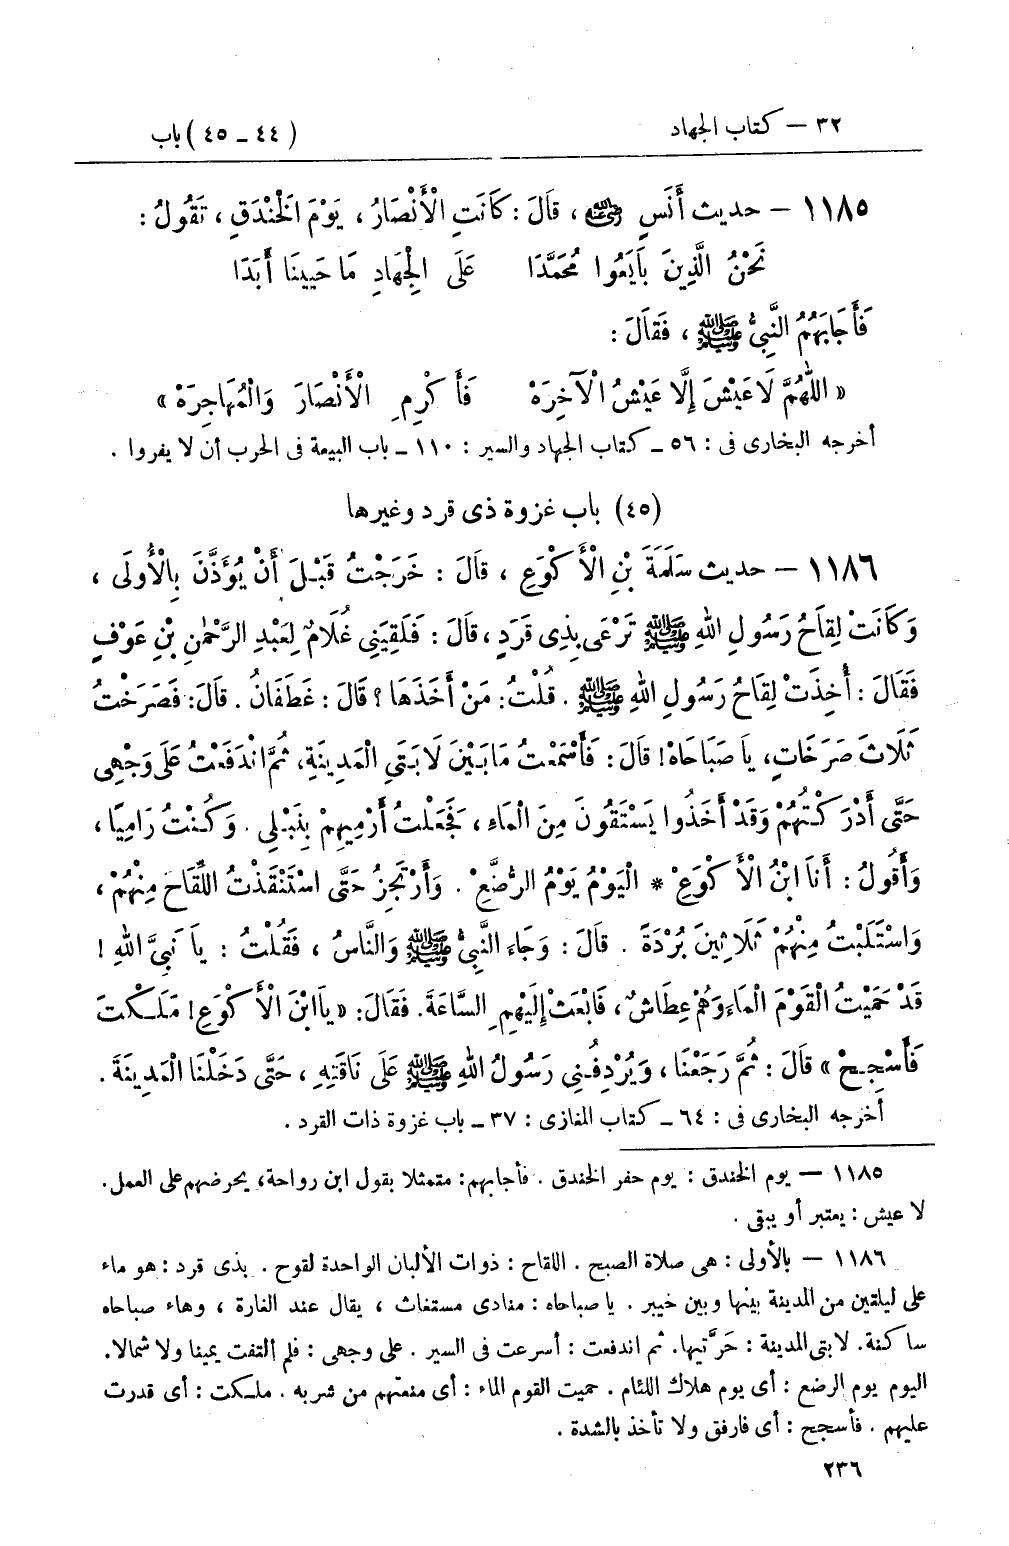 ٣٢ – كتاب الجهاد (٤٤ – ٤٥) باب
١١٨٥ – حديث أَنَسٍ رضي الله عنه ، قَالَ : كَانَتِ الْأَنْصَارُ ، يَوْمَ الْخَنْدَقِ ، تَقُولُ :
نَحْنُ الَّذِينَ بَايَعُوا مُحَمَّدَا عَلَى الْجِهَادِ مَا حَيِينَا أَبَدَا
فَأَجَابَهُمُ النَّبِيُّ ﷺ ، فَقَالَ :
« اللّٰهُمَّ لَا عَيْشَ إِلَّا عَيْشُ الْآخِرَهْ فَأَكْرِمِ الْأَنْصَارَ وَالْمُهَاجِرَهْ »
أخرجه البخارى فى : ٥٦ – كتاب الجهاد والسير : ١١٠ – باب البيعة فى الحرب أن لا يفروا .
(٤٥) باب غزوة ذى قرد وغيرها
١١٨٦ – حديث سَلَمَةَ بْنِ الْأَكْوَعِ ، قَالَ : خَرَجْتُ قَبْلَ أَنْ يُؤَذَّنَ بِالْأُولَى ،
وَكَانَتْ لِقَاحُ رَسُولِ اللهِ ﷺ تَرْعَى بِذِى قَرَدٍ ، قَالَ : فَلَقِيَنِى غُلَامٌ لِعَبْدِ الرَّحْمٰنِ بْنِ عَوْفٍ
فَقَالَ : أُخِذَتْ لِقَاحُ رَسُولِ اللهِ ﷺ . قُلْتُ : مَنْ أَخَذَهَا ؟ قَالَ : غَطَفَانُ . قَالَ : فَصَرَخْتُ
ثَلَاثَ صَرَخَاتٍ ، يَا صَبَاحَاهْ ! قَالَ : فَأَسْمَعْتُ مَا بَيْنَ لَابَتَىِ الْمَدِينَةِ ، ثُمَّ انْدَفَعْتُ عَلَى وَجْهِى
حَتَّى أَدْرَكْتُهُمْ وَقَدْ أَخَذُوا يَسْتَقُونَ مِنَ الْمَاءِ ، فَجَعَلْتُ أَرْمِيهِمْ بِنَبْلِى . وَكُنْتُ رَامِيًا ،
وَأَقُولُ : أَنَا ابْنُ الْأَكْوَعْ * الْيَوْمُ يَوْمُ الرُّضَّعْ . وَأَرْتَجِزُ حَتَّى اسْتَنْقَذْتُ اللِّقَاحَ مِنْهُمْ ،
وَاسْتَلَبْتُ مِنْهُمْ ثَلَاثِينَ بُرْدَةً . قَالَ : وَجَاءَ النَّبِيُّ ﷺ وَالنَّاسُ ، فَقُلْتُ : يَا نَبِيَّ اللهِ !
قَدْ حَمَيْتُ الْقَوْمَ الْمَاءَ وَهُمْ عِطَاشٌ ، فَابْعَثْ إِلَيْهِمِ السَّاعَةَ . فَقَالَ : « يَا ابْنَ الْأَكْوَعِ ! مَلَكْتَ
فَأَسْجِحْ » قَالَ : ثُمَّ رَجَعْنَا ، وَيُرْدِفُنِى رَسُولُ اللهِ ﷺ عَلَى نَاقَتِهِ ، حَتَّى دَخَلْنَا الْمَدِينَةَ .
أخرجه البخارى فى : ٦٤ – كتاب المغازى : ٣٧ – باب غزوة ذات القرد .
١١٨٥ – يوم الخندق : يوم حفر الخندق . فأجابهم : متمثلا بقول ابن رواحة، يحرضهم على العمل .
لا عيش : يعتبر أو يبقى .
١١٨٦ – بالأولى : هى صلاة الصبح . اللقاح : ذوات الألبان الواحدة لقوح . بذى قرد : هو ماء
على ليلتين من المدينة بينها وبين خيبر . يا صباحاه : منادى مستغاث ، يقال عند الغارة ، وهاء صباحاه
ساكنة. لابتى المدينة : حَرَّتيها. ثم اندفعت : أسرعت فى السير . على وجهى : فلم ألتفت يمينا ولا شمالا.
اليوم يوم الرضع : أى يوم هلاك اللئام . حميت القوم الماء : أى منعتهم من شربه . ملكت : أى قدرت
عليهم . فأسجح : أى فارفق ولا تأخذ بالشدة .
٢٣٦